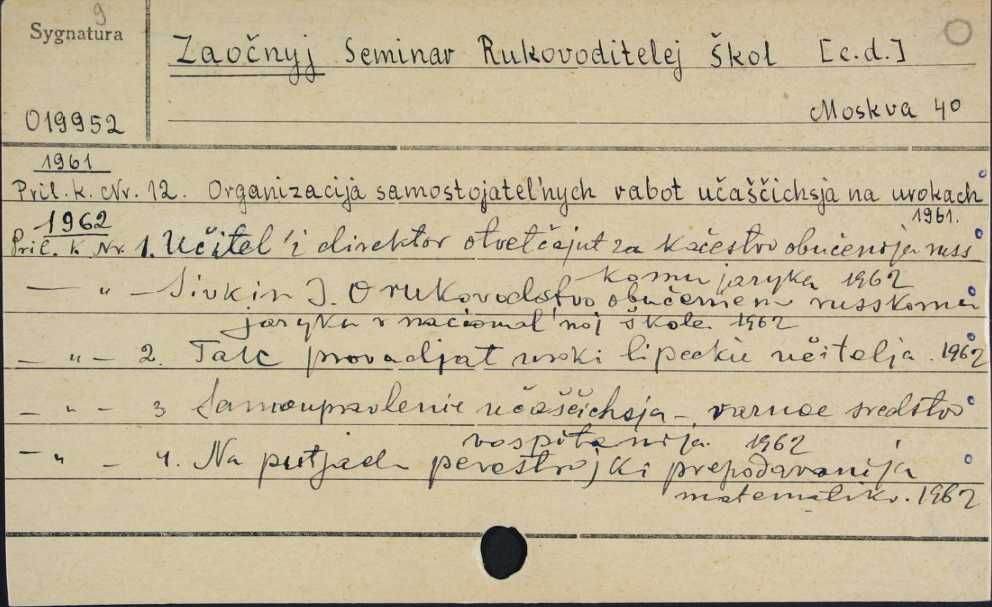 9
Sygnatura
Zaočnyj Seminar Rukovoditelej Škol [c.d.]
Moskva 40
019952
1961
Pril. k. Nr. 12. Organizacija samostojatel'nych rabot učaščichsja na urokach
1961.
1962
Pril. k Nr. 1. Učitel' i direktor otvečajut za kačestvo obučenija russ
komu jazyka 1962
— " — Sivkin I. O rukovodstvo obučeniem russkomu
jazyku v nacional'noj škole. 1962
— " — 2. Tak provodjat uroki lipeckie učitelja. 1962
— " — 3 Samoupravlenie učaščichsja – važnoe sredstvo
vospitanija. 1962
— " — 4. Na putjach perestrojki prepodavanija
matematiki. 1962